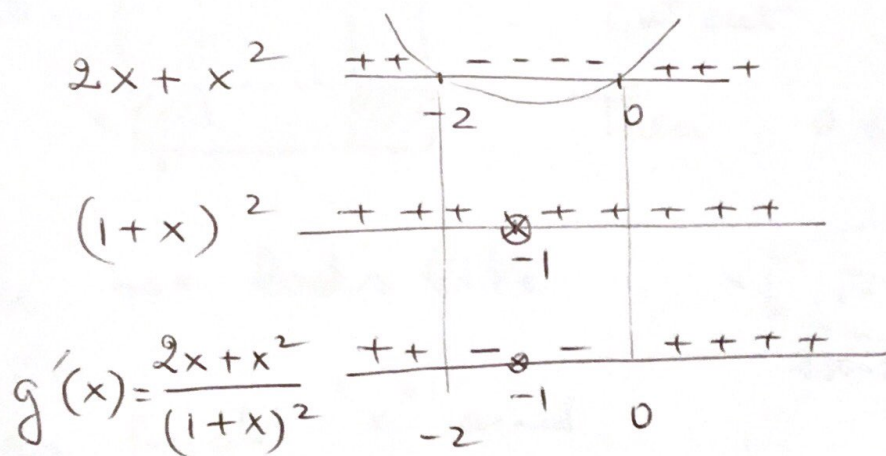 2x + x² ++ - - - - +++
-2 0
(1+x)² + + + + + + + +
-1
g'(x) = (2x+x²)/(1+x)² ++ - - ++++
-1
-2 0